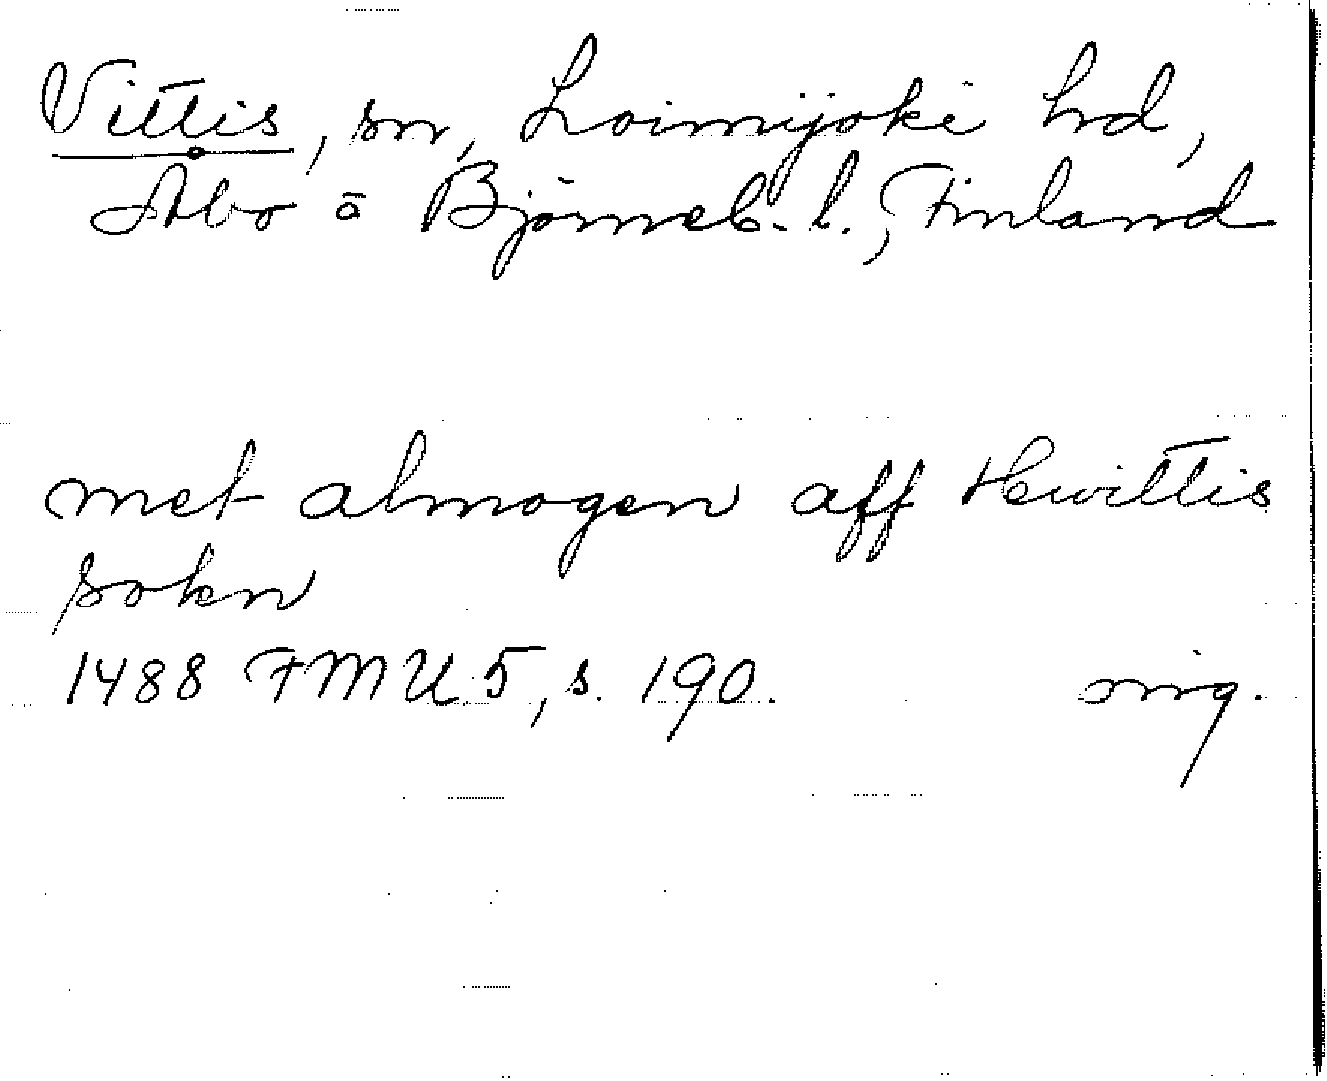 Vittis, sn, Loimijoki hd,
Åbo o Björneb. l., Finland
met almogen aff Hwittis
sokn
1488 FMU 5, s. 190.